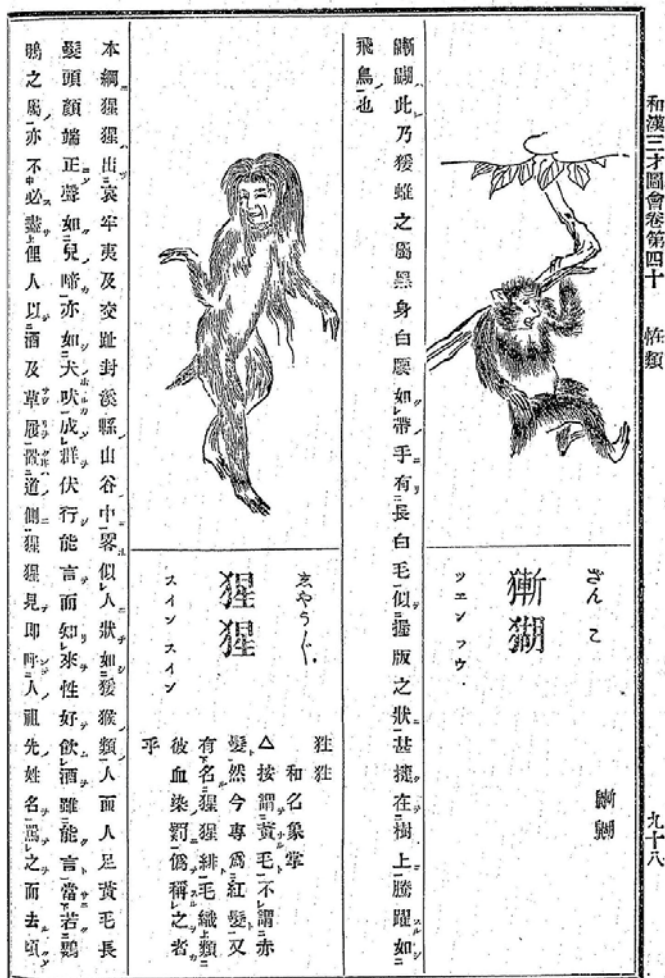 和漢三才圖會卷第四十 恠類 九十八
ざんこ
獑猢
ツエン フウ
此乃猨蜼之屬黑身白腰如帶手有長白毛似握版之狀甚捷在樹上騰躍如
飛鳥也
猩猩
スイン スイン
狌狌
和名象掌
△按謂黃毛不謂赤
髮然今專爲紅髮又
有名猩猩緋毛織類
彼血染罽僞稱之者
乎
本綱猩猩出哀牢夷及交趾封溪縣山谷中畧似人狀如猨猴類人面人足黃毛長
髮頭顏端正聲如兒啼亦如犬吠成群伏行能言而知來性好飲酒雖能言當若鸚
鵡之屬亦不必盡俚人以酒及草履置道側猩猩見即呼人祖先姓名罵之而去頃